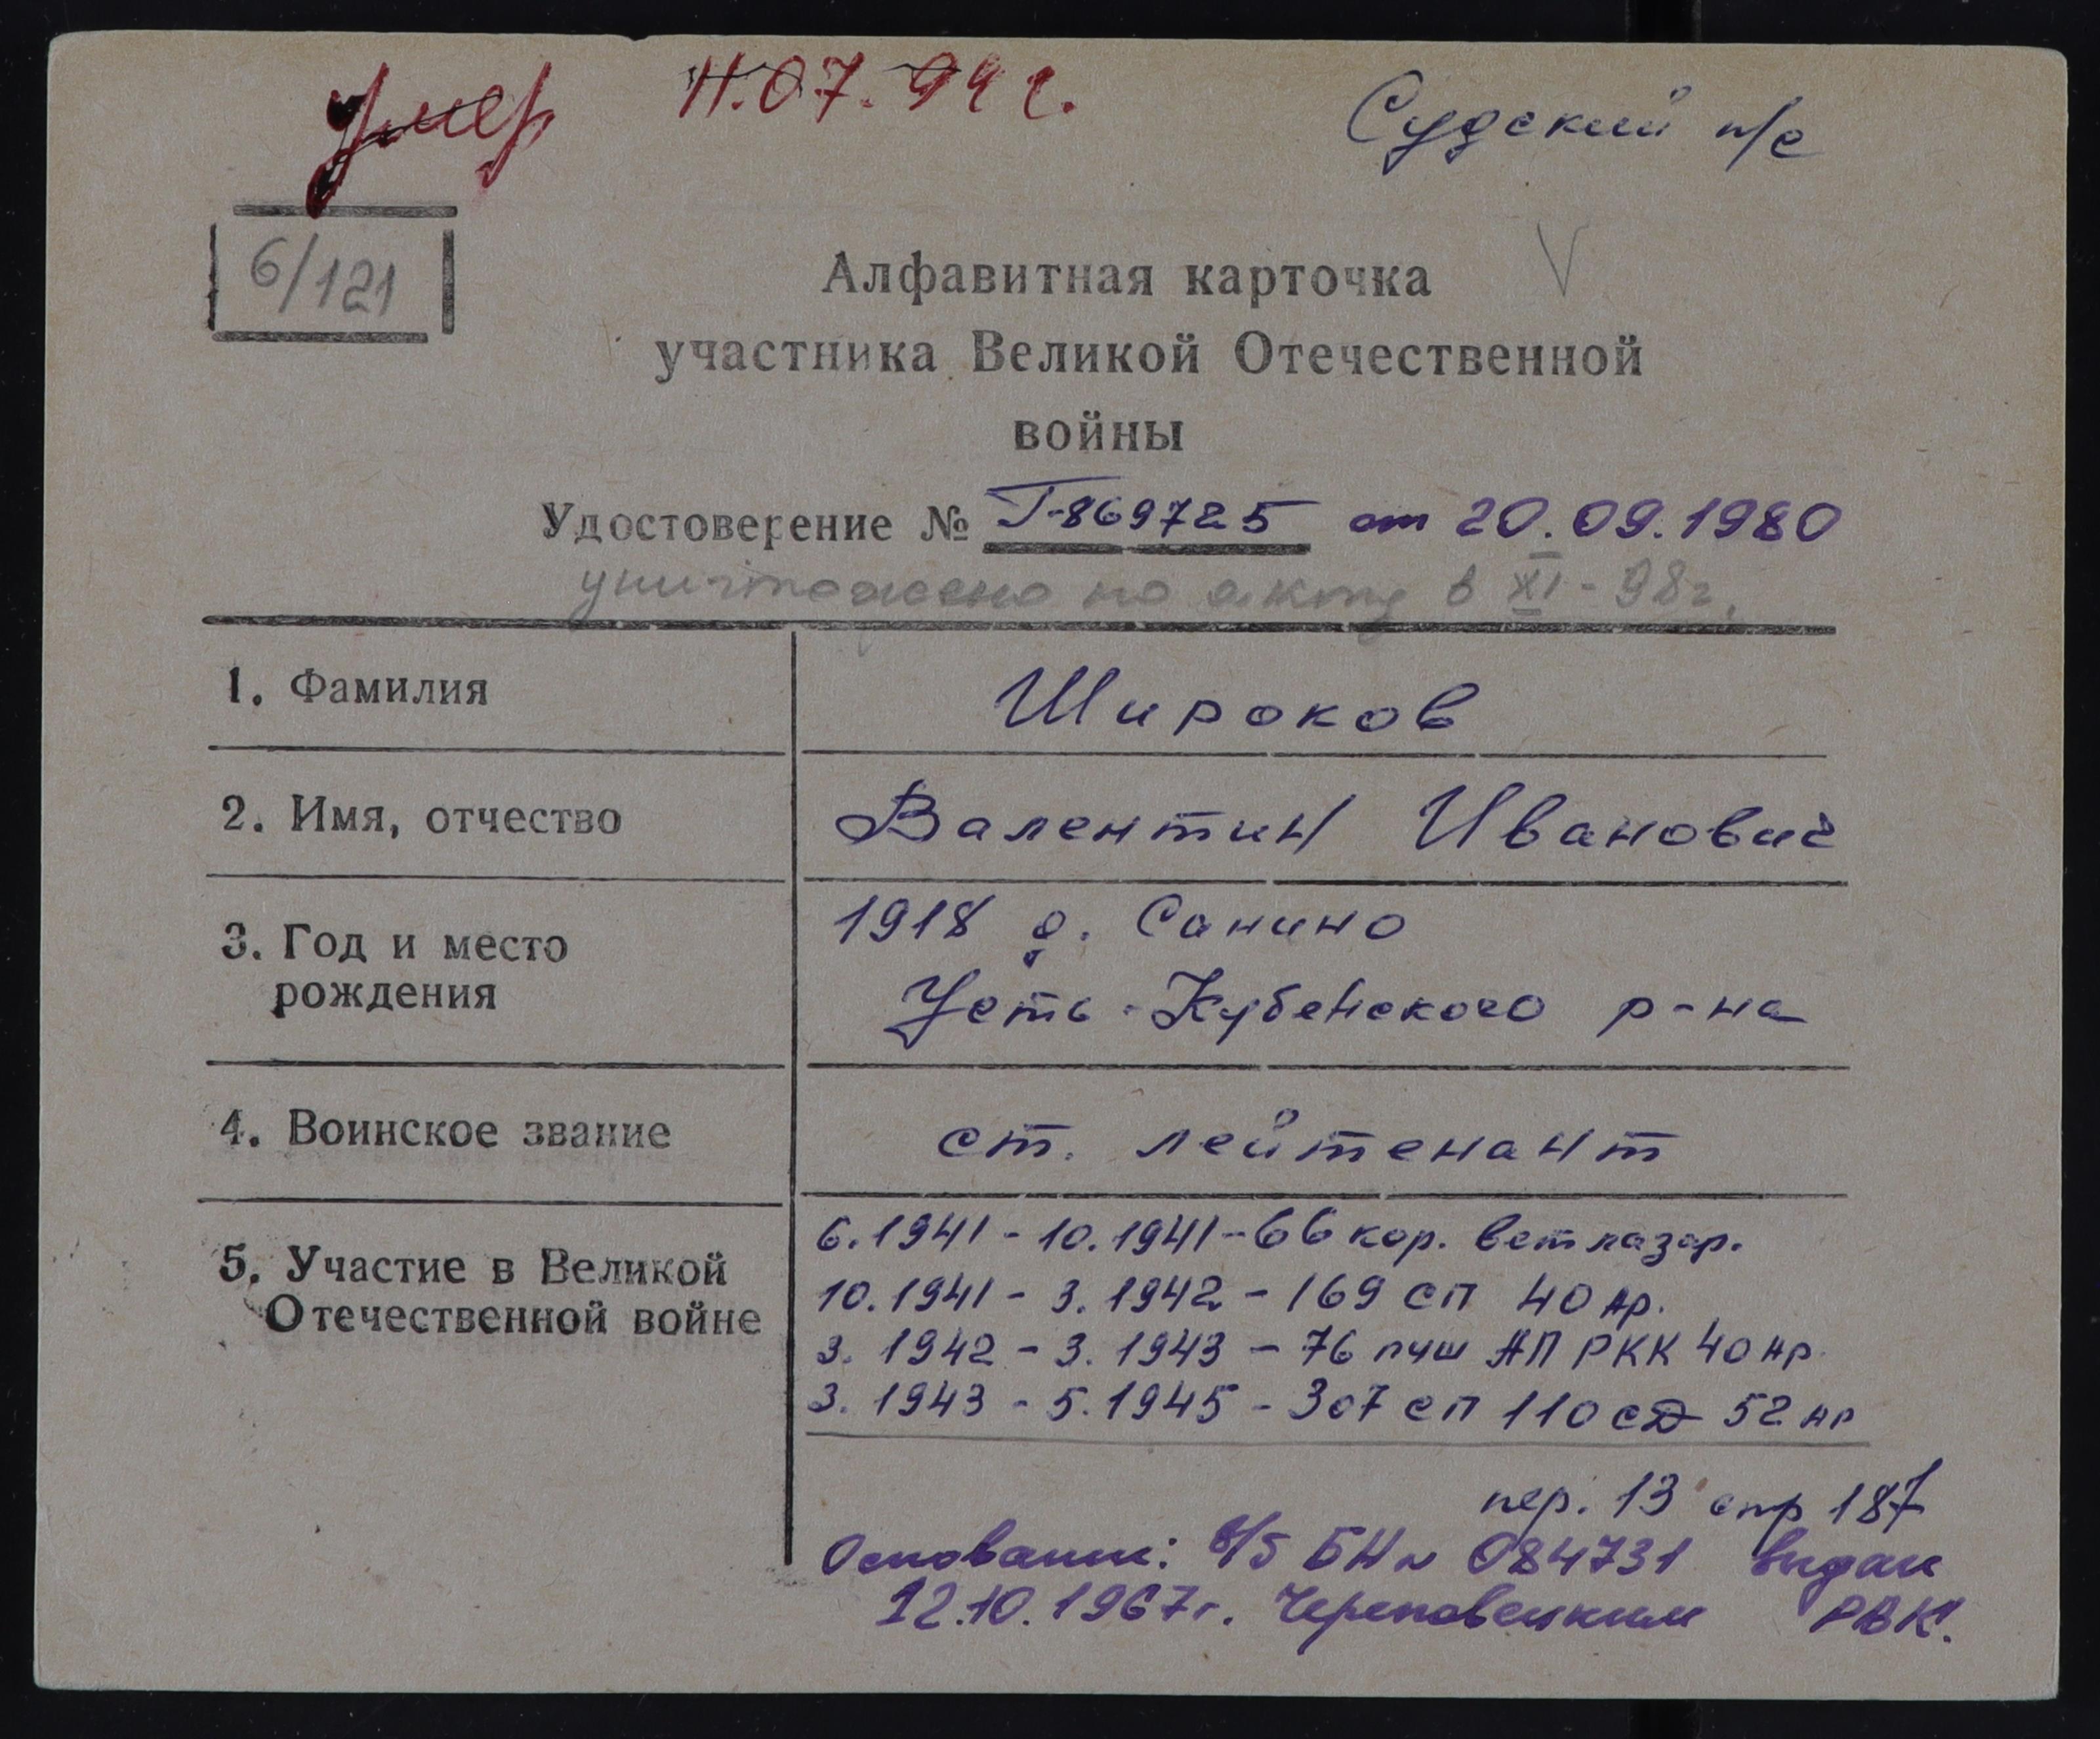 Умер 11.07.94 г.
Судский п/с
6/121
V
Алфавитная карточка
участника Великой Отечественной
войны
Удостоверение № Г-869725 от 20.09.1980
уничтожено по акту в XI-98г.
1. Фамилия Широков
2. Имя, отчество Валентин Иванович
3. Год и место рождения 1918 д. Санино
Усть-Кубенского р-на
4. Воинское звание ст. лейтенант
5. Участие в Великой Отечественной войне
6.1941 - 10.1941 - 66 кор. ветлазар.
10.1941 - 3.1942 - 169 сп 40 ар.
3.1942 - 3.1943 - 76 пчш АП РКК 40 ар.
3.1943 - 5.1945 - 307 сп 110 сд 52 ар
пер. 13 стр 187
Основание: в/б БН № 084731 выдан
12.10.1967г. Череповецким РВК.